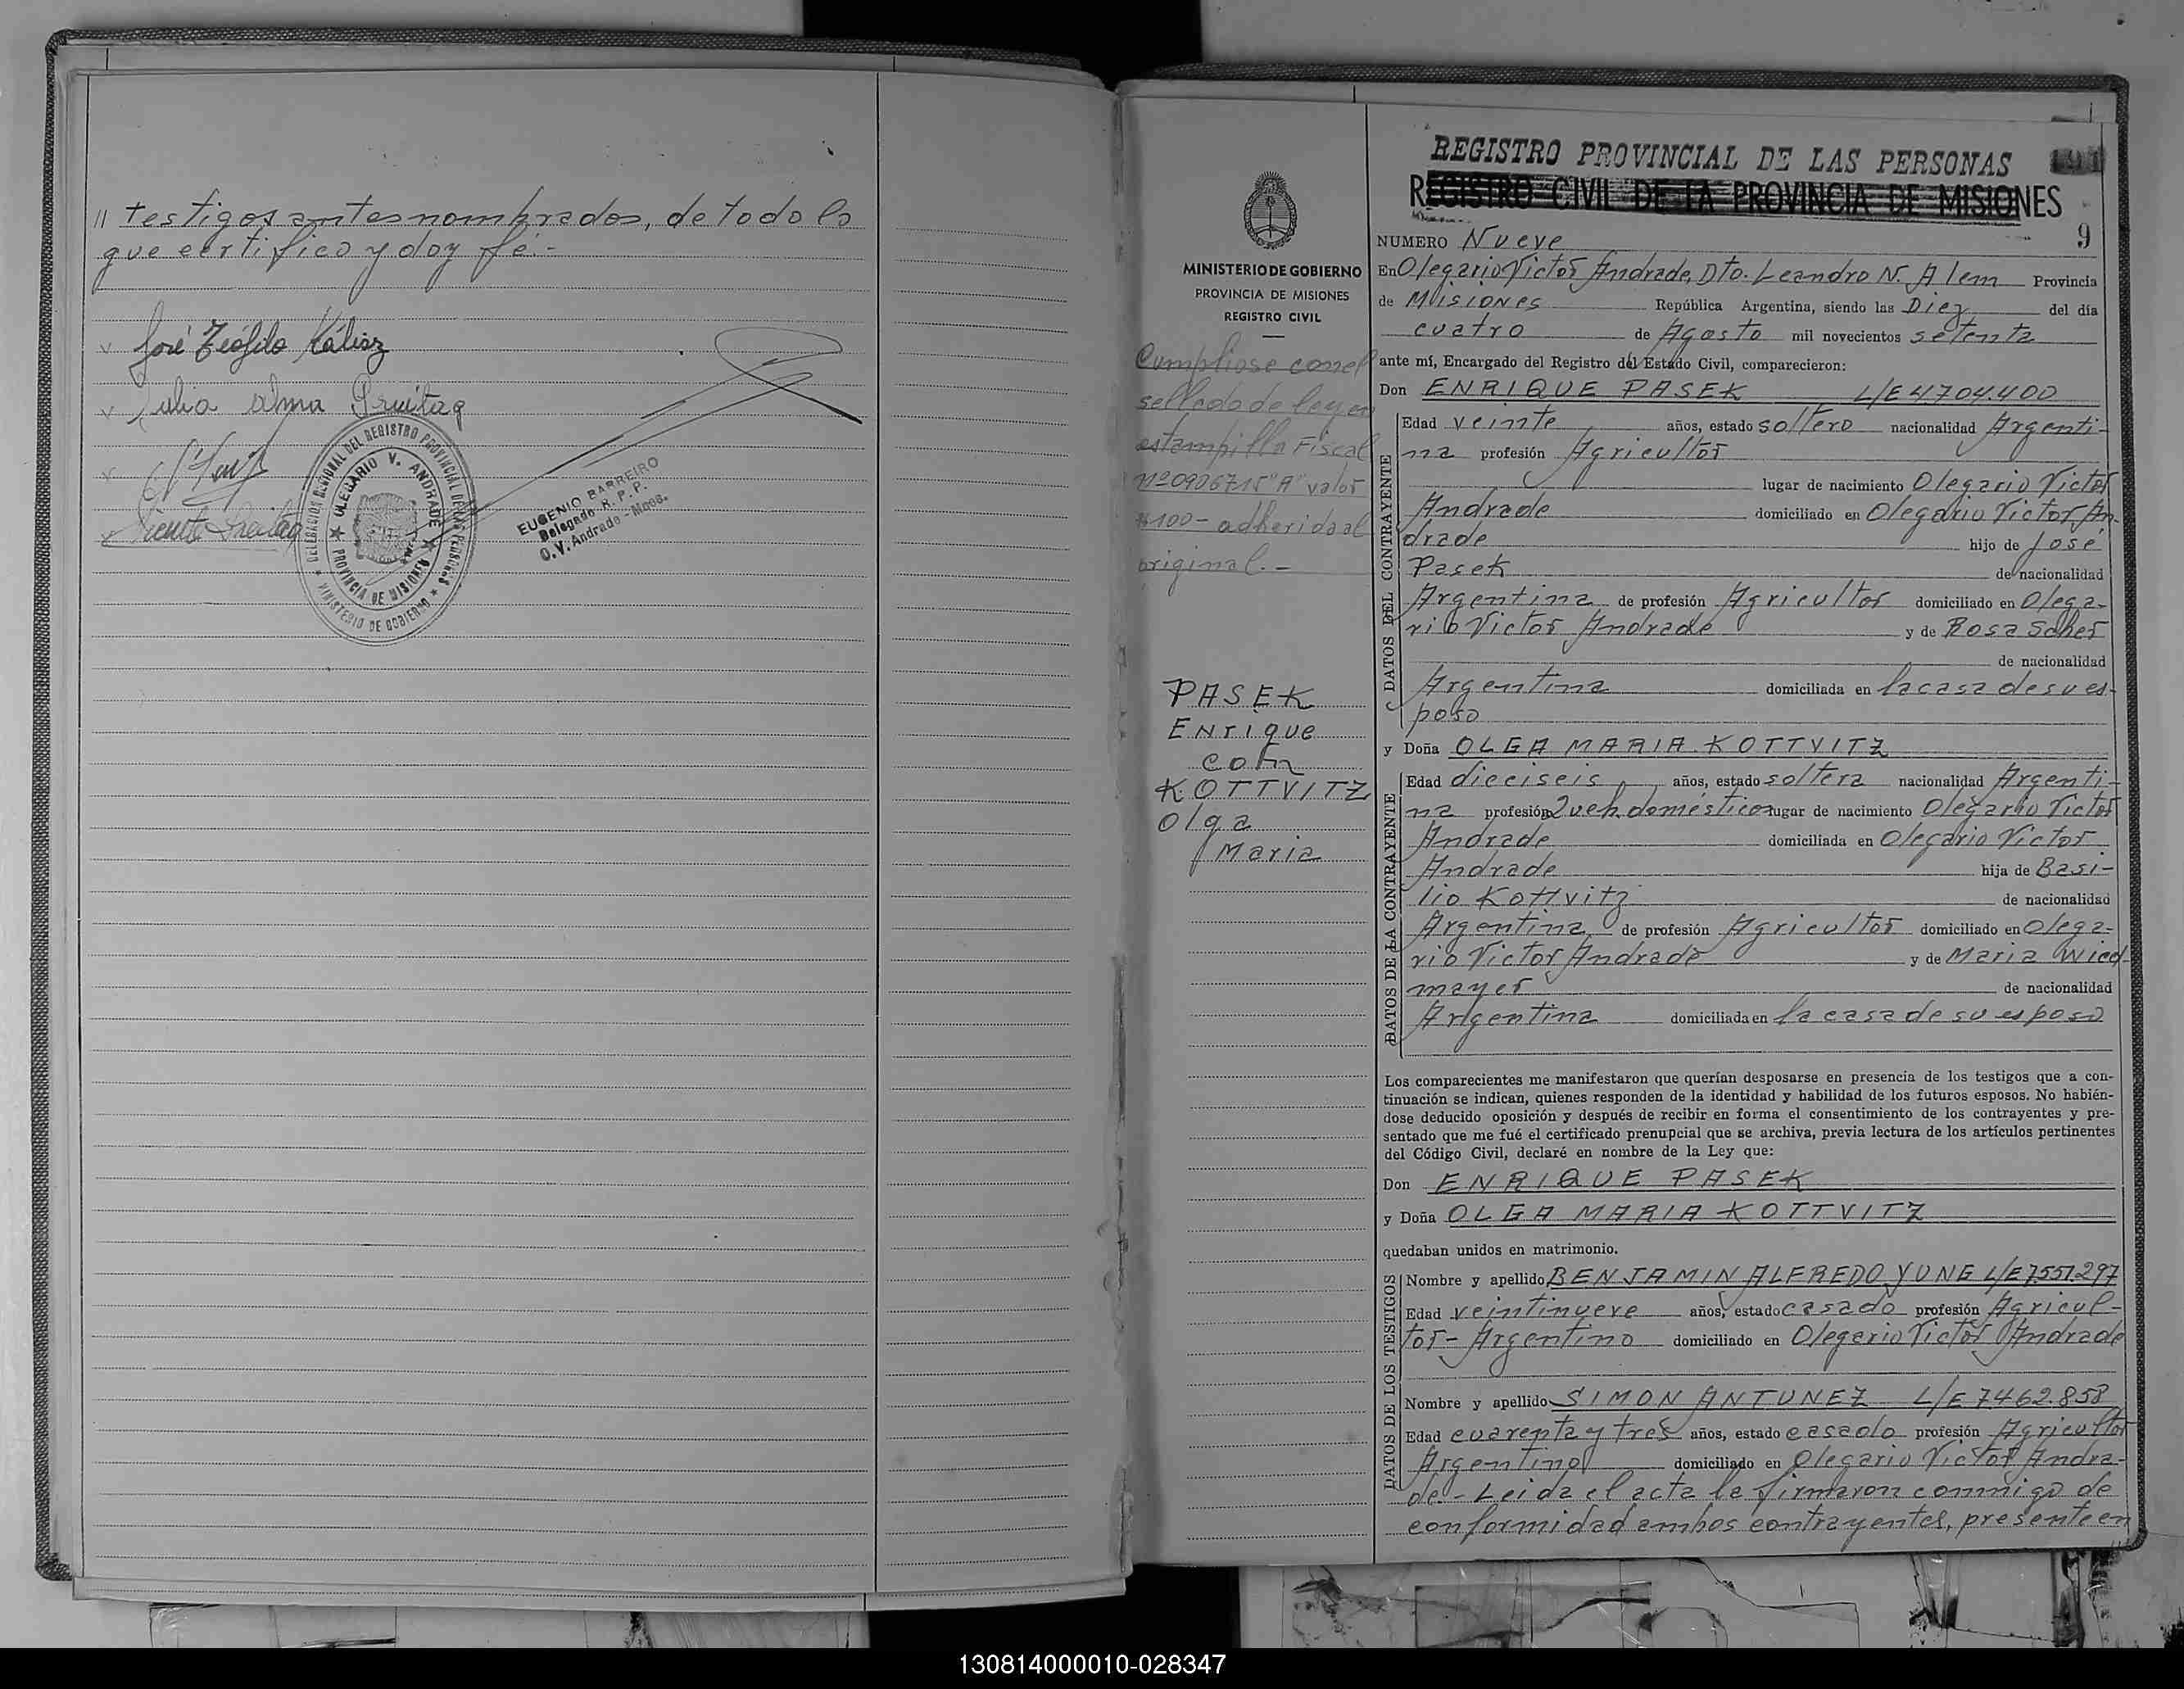 // testigos antes nombrados, de todo lo
que certifico y doy fé.-
José Teófilo Kálisz
Julia Alma Freitag
Vicente Freitag
DELEGACION REGIONAL DEL REGISTRO PROVINCIAL DE LAS PERSONAS
* MINISTERIO DE GOBIERNO *
★ OLEGARIO V. ANDRADE ★
PROVINCIA DE MISIONES
EUGENIO BARREIRO
Delegado R. P. P.
O. V. Andrade - Mnes.
MINISTERIO DE GOBIERNO
PROVINCIA DE MISIONES
REGISTRO CIVIL
Cumpliose con el
sellado de ley en
estampilla Fiscal
Nº 0906715 "A" valor
$ 100- adherida al
original.-
PASEK
Enrique
con
KOTTVITZ
Olga
Maria
REGISTRO PROVINCIAL DE LAS PERSONAS
REGISTRO CIVIL DE LA PROVINCIA DE MISIONES
9
NUMERO Nueve
En Olegario Victor Andrade, Dto. Leandro N. Alem Provincia
de Misiones República Argentina, siendo las Diez del día
cuatro de Agosto mil novecientos setenta
ante mí, Encargado del Registro del Estado Civil, comparecieron:
Don ENRIQUE PASEK L/E 4.704.400
DATOS DEL CONTRAYENTE
Edad veinte años, estado soltero nacionalidad Argenti-
na profesión Agricultor
lugar de nacimiento Olegario Victor
Andrade domiciliado en Olegario Victor An-
drade hijo de José
Pasek de nacionalidad
Argentina de profesión Agricultor domiciliado en Olega-
rio Victor Andrade y de Rosa Scher
de nacionalidad
Argentina domiciliada en la casa de su es-
poso
y Doña OLGA MARIA KOTTVITZ
DATOS DE LA CONTRAYENTE
Edad dieciseis años, estado soltera nacionalidad Argenti-
na profesión queh. domésticos lugar de nacimiento Olegario Victor
Andrade domiciliada en Olegario Victor
Andrade hija de Basi-
lio Kottvitz de nacionalidad
Argentina de profesión Agricultor domiciliado en Olega-
rio Victor Andrade y de Maria Wied-
mayer de nacionalidad
Argentina domiciliada en la casa de su esposo
Los comparecientes me manifestaron que querían desposarse en presencia de los testigos que a con-
tinuación se indican, quienes responden de la identidad y habilidad de los futuros esposos. No habién-
dose deducido oposición y después de recibir en forma el consentimiento de los contrayentes y pre-
sentado que me fué el certificado prenupcial que se archiva, previa lectura de los artículos pertinentes
del Código Civil, declaré en nombre de la Ley que:
Don ENRIQUE PASEK
y Doña OLGA MARIA KOTTVITZ
quedaban unidos en matrimonio.
DATOS DE LOS TESTIGOS
Nombre y apellido BENJAMIN ALFREDO YUNG L/E 7.551.297
Edad veintinueve años, estado casado profesión Agricul-
tor- Argentino domiciliado en Olegario Victor Andrade
Nombre y apellido SIMON ANTUNEZ L/E 7.462.858
Edad cuarenta y tres años, estado casado profesión Agricultor
Argentino domiciliado en Olegario Victor Andra-
de.- Leida el acta la firmaron conmigo de
conformidad ambos contrayentes, presente en
130814000010-028347